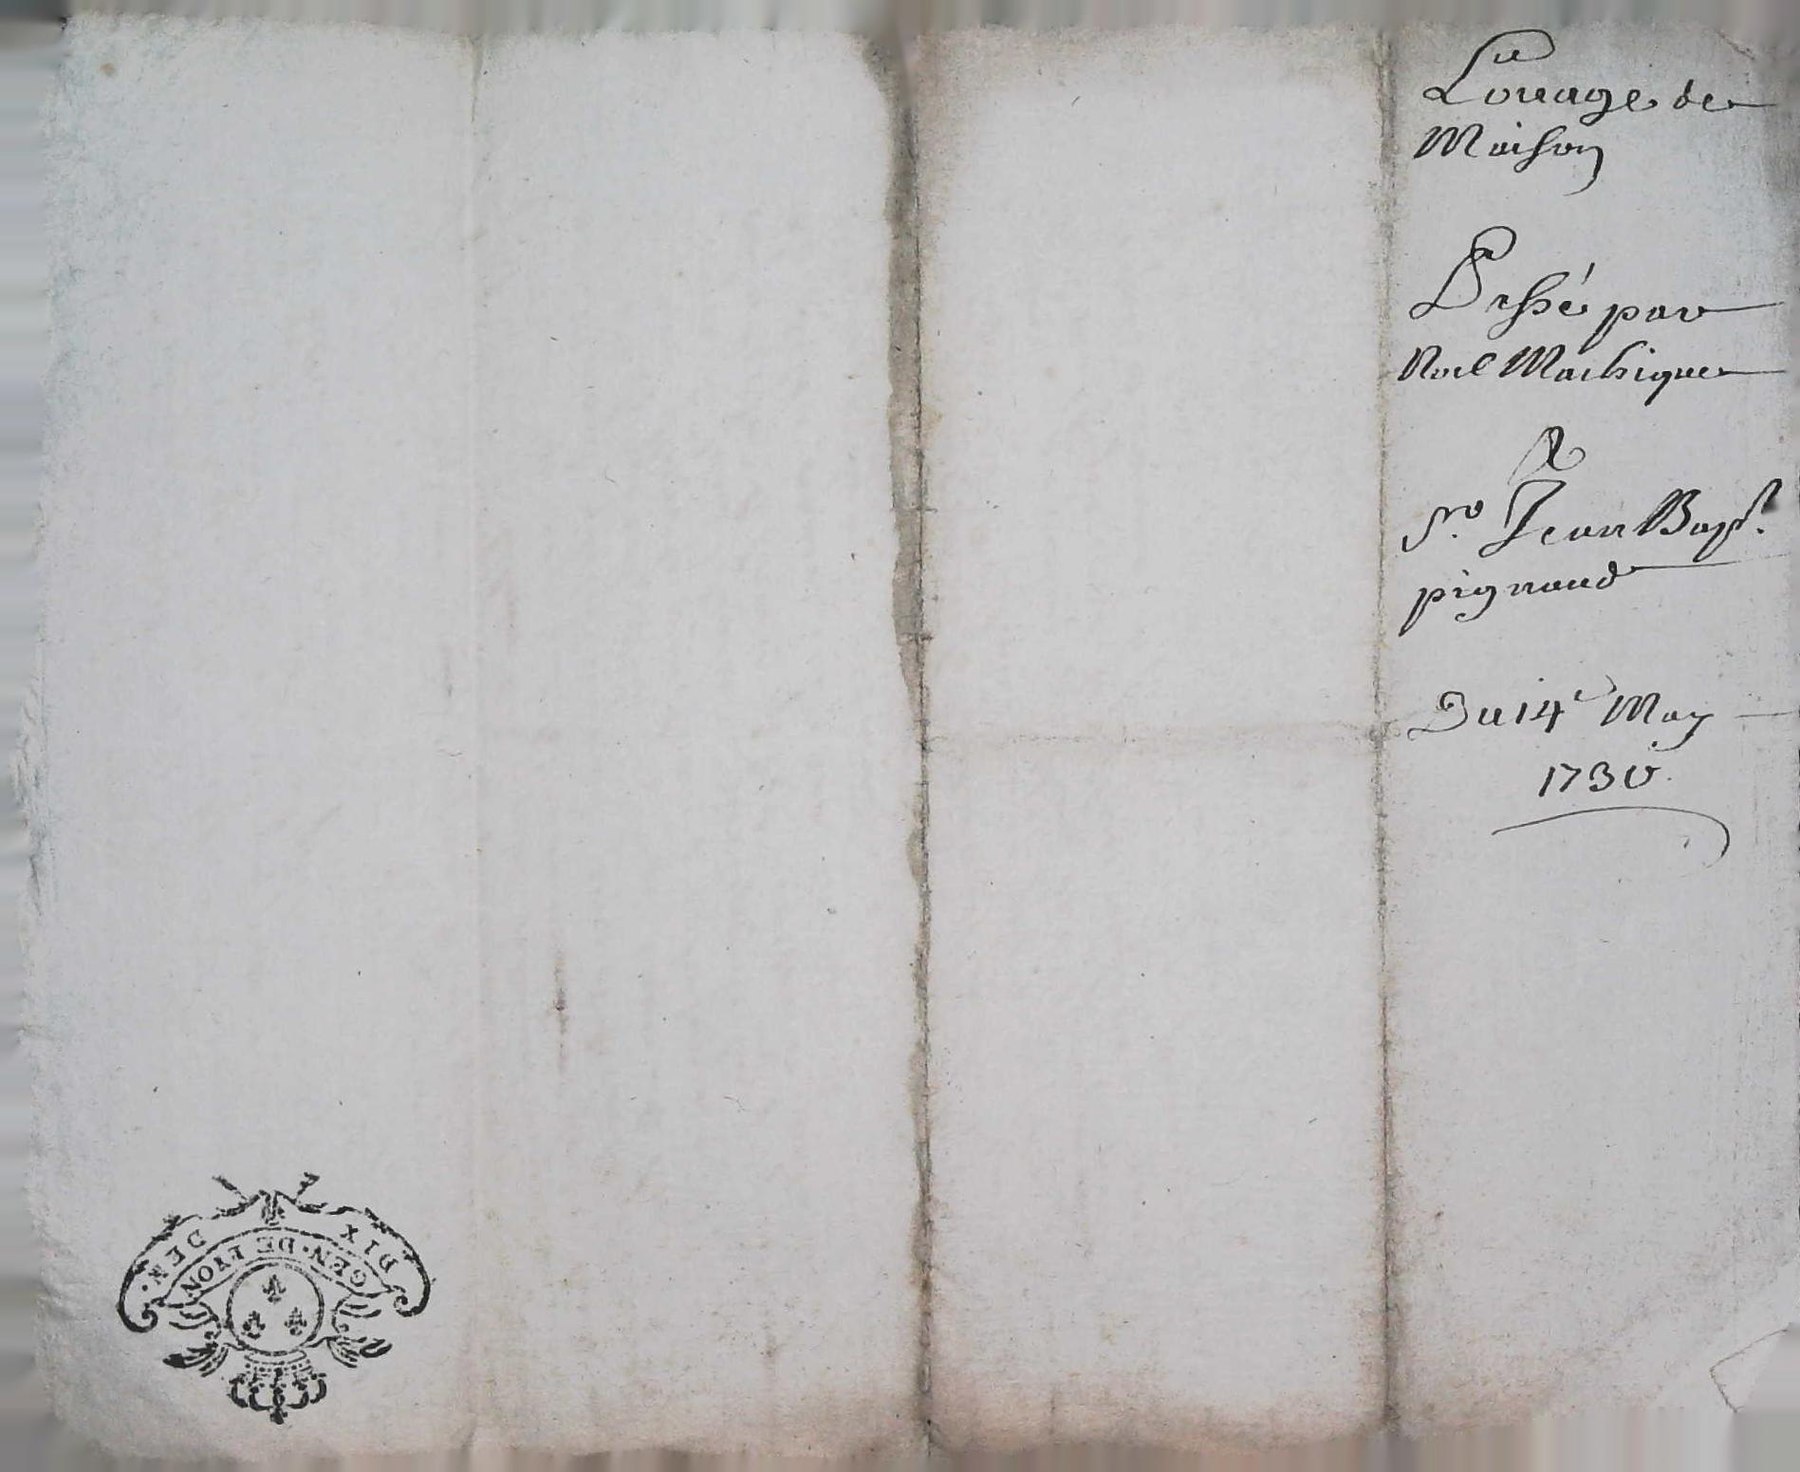 Louage de
Maison
Passé par
Noel Machique
A
Sr. Jean Bapt.
pignaud
Du 14e May
1730.
DIX DEN.
GEN. DE LYON